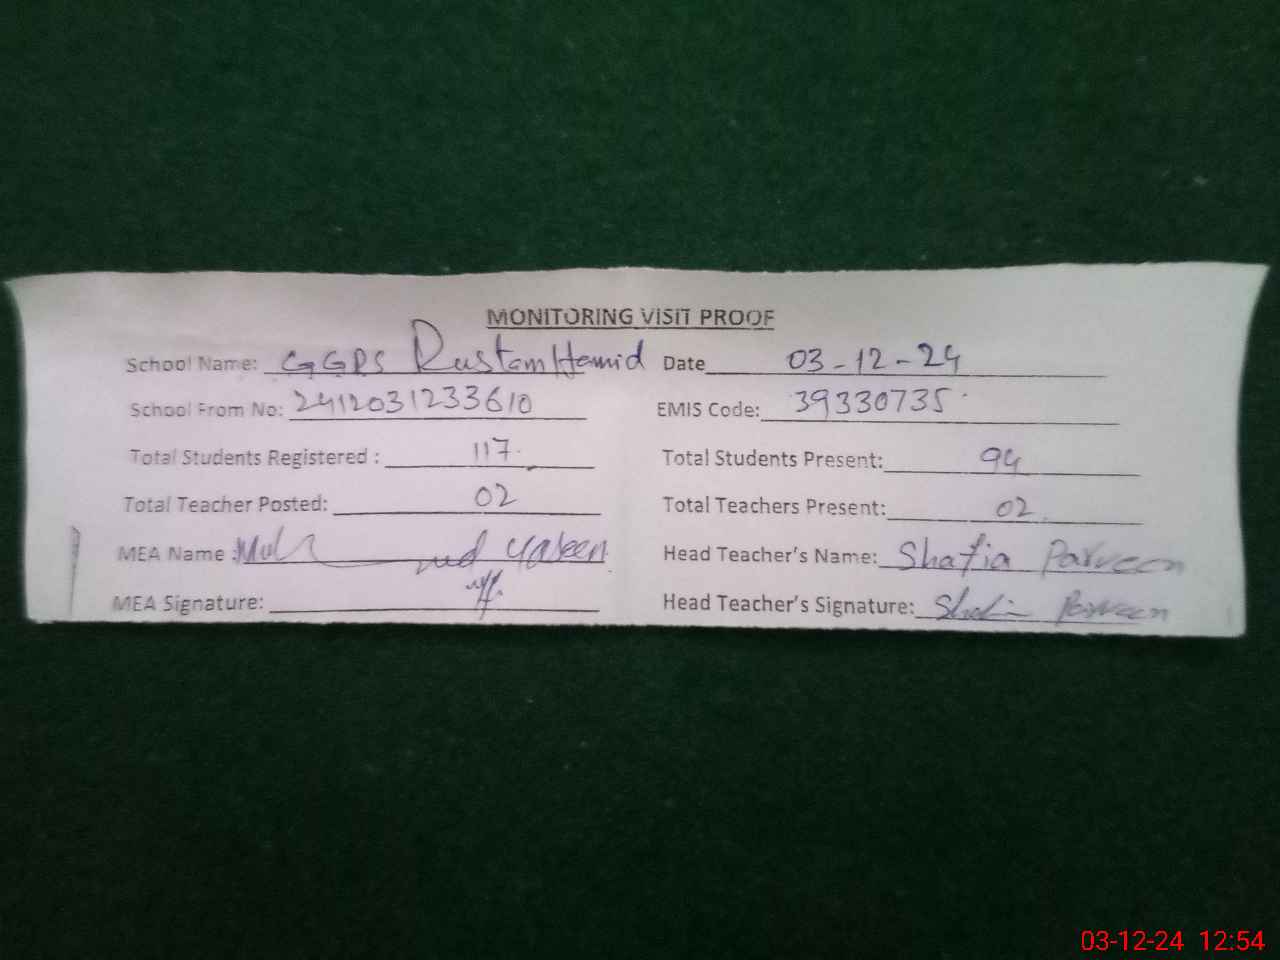 MONITORING VISIT PROOF
School Name: GGPS Rustam Hamid Date 03-12-24
School From No: 2412031233610 EMIS Code: 39330735
Total Students Registered : 117 Total Students Present: 94
Total Teacher Posted: 02 Total Teachers Present: 02
MEA Name : Yaseen Head Teacher's Name: Shafia Parveen
MEA Signature: Head Teacher's Signature: Parveen
03-12-24 12:54